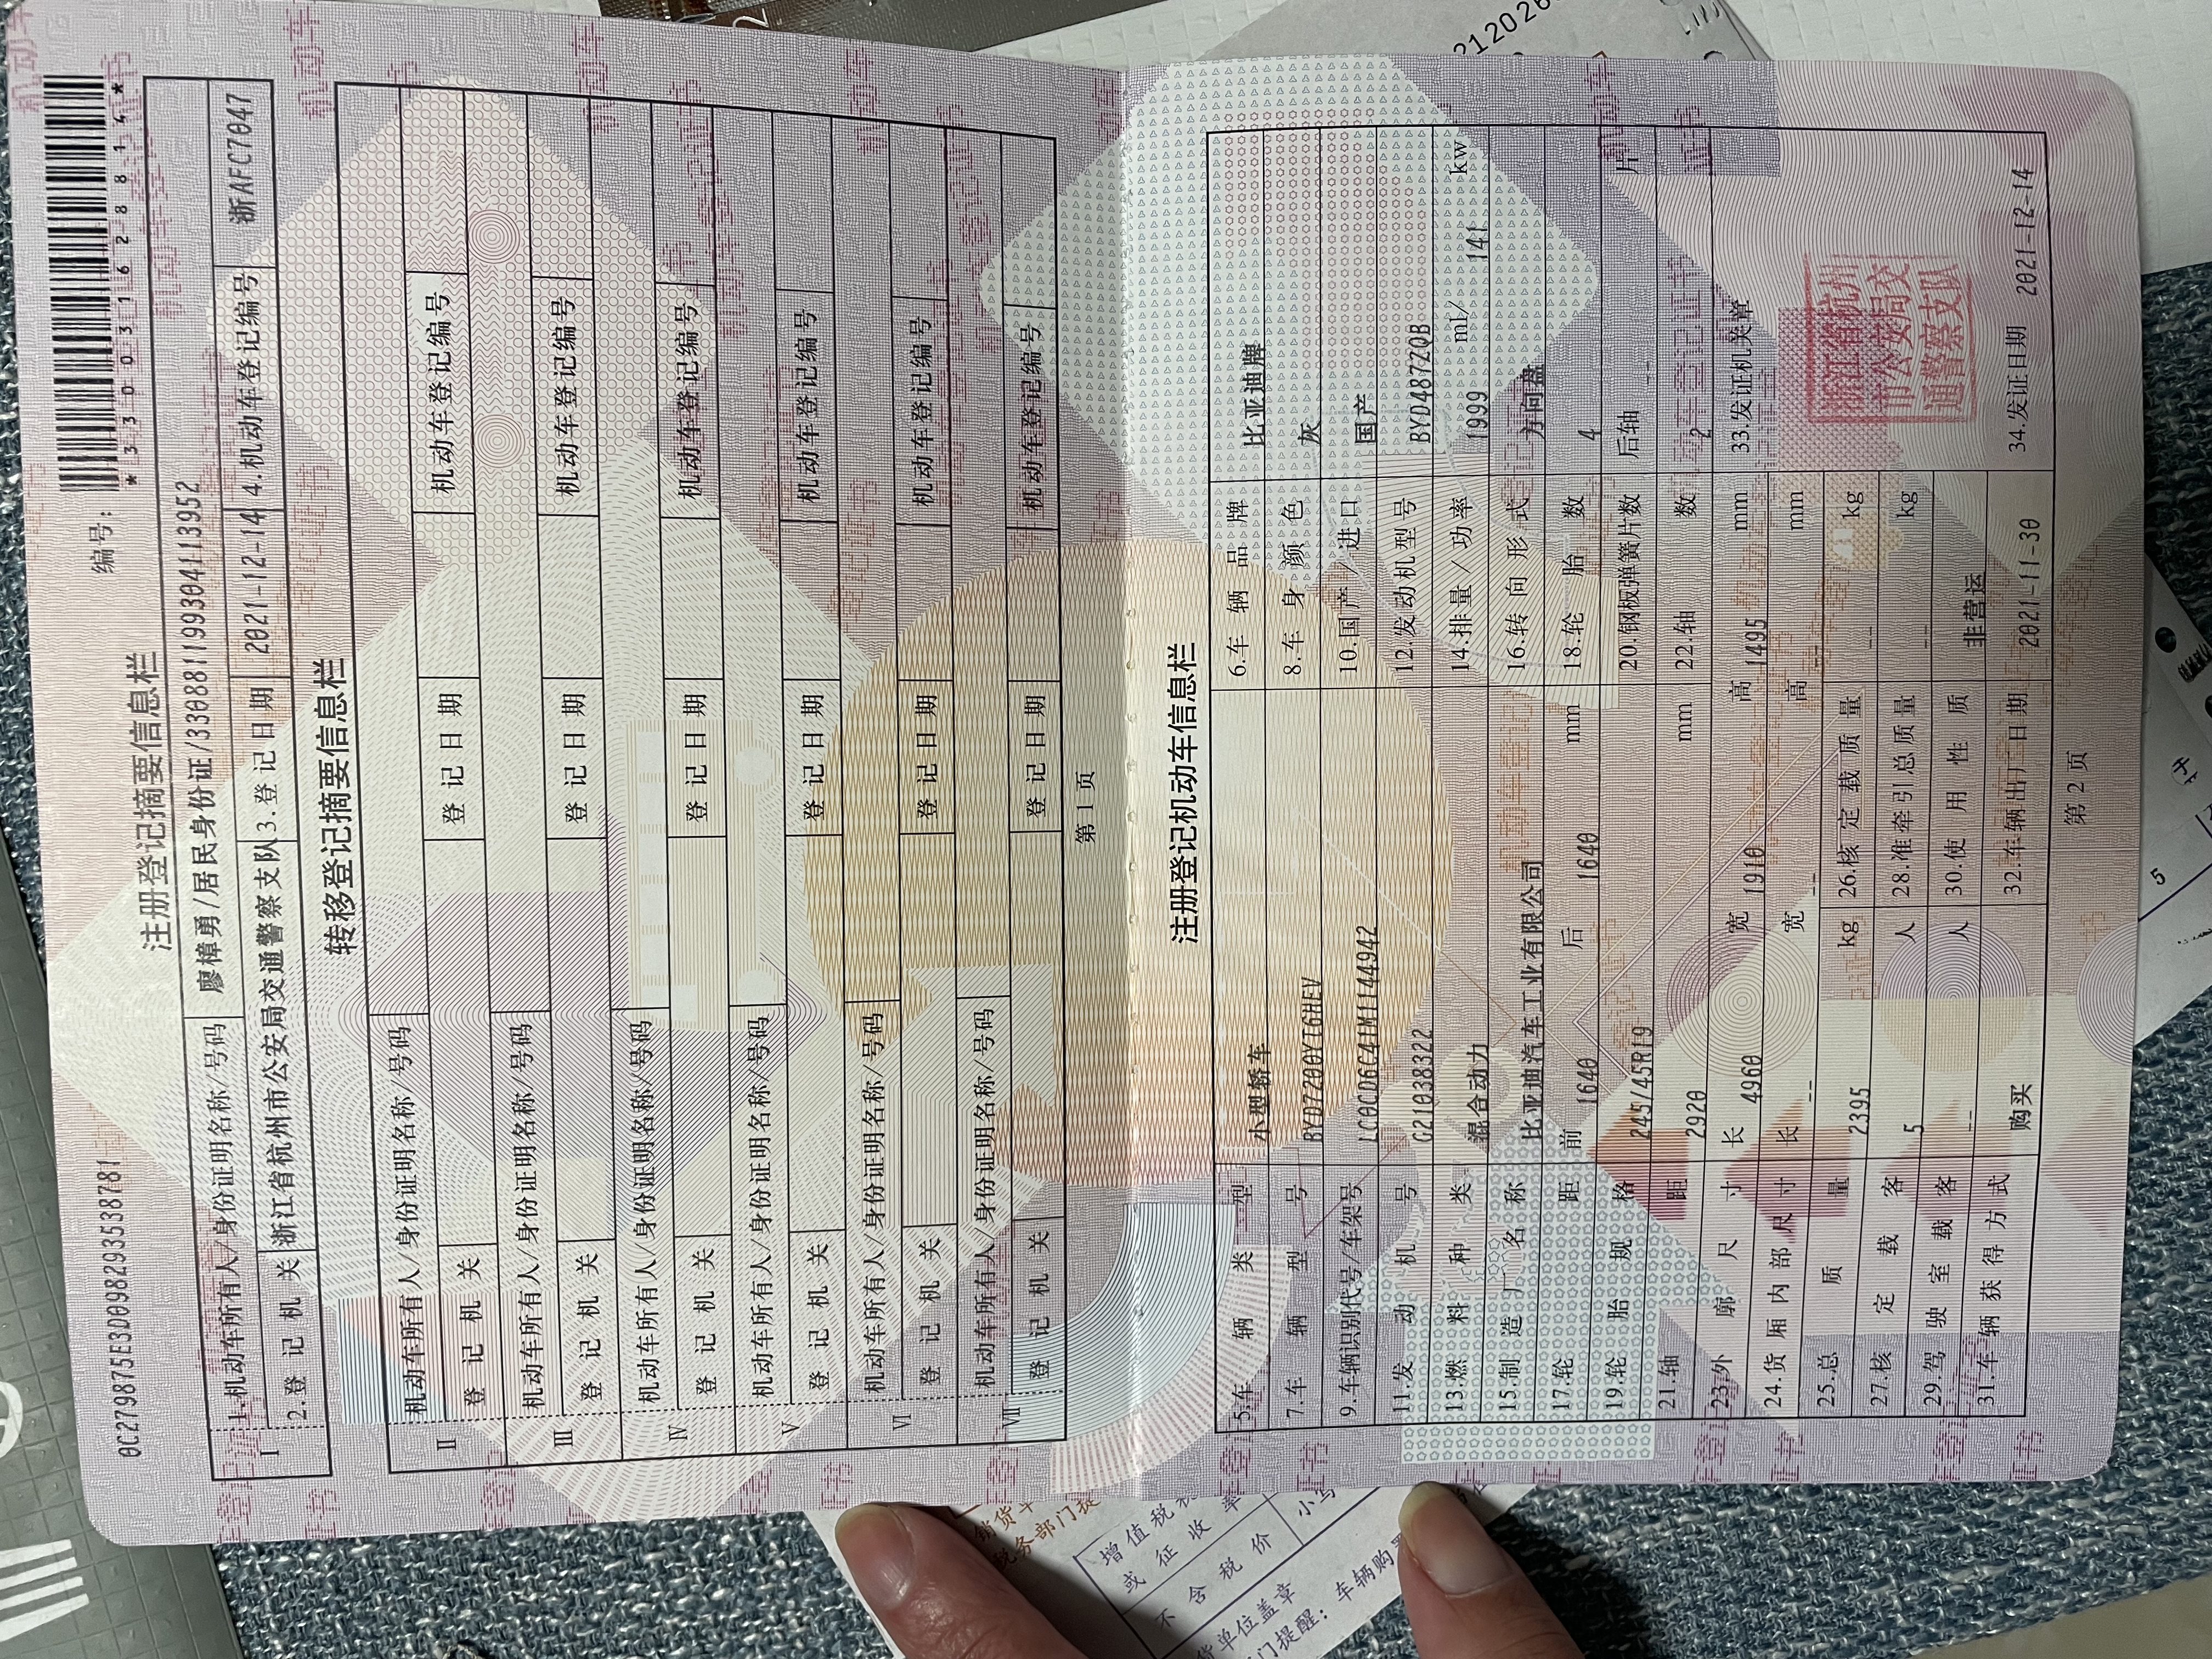 0C279875E3D0982935538781
编号：
*330031628814*
注册登记摘要信息栏
Ⅰ 1.机动车所有人/身份证明名称/号码 廖樟勇/居民身份证/330881199304113952
2.登记机关 浙江省杭州市公安局交通警察支队 3.登记日期 2021-12-14 4.机动车登记编号 浙AFC7047
转移登记摘要信息栏
Ⅱ 机动车所有人/身份证明名称/号码
登记机关 登记日期 机动车登记编号
Ⅲ 机动车所有人/身份证明名称/号码
登记机关 登记日期 机动车登记编号
Ⅳ 机动车所有人/身份证明名称/号码
登记机关 登记日期 机动车登记编号
Ⅴ 机动车所有人/身份证明名称/号码
登记机关 登记日期 机动车登记编号
Ⅵ 机动车所有人/身份证明名称/号码
登记机关 登记日期 机动车登记编号
Ⅶ 机动车所有人/身份证明名称/号码
登记机关 登记日期 机动车登记编号
第1页
注册登记机动车信息栏
5.车辆类型 小型轿车 6.车辆品牌 比亚迪牌
7.车辆型号 BYD7200YT6HEV 8.车身颜色 灰
9.车辆识别代号/车架号 LC0CD6C41M1144942 10.国产/进口 国产
11.发动机号 G21038322 12.发动机型号 BYD487ZQB
13.燃料种类 混合动力 14.排量/功率 1999 ml/ 141 kw
15.制造厂名称 比亚迪汽车工业有限公司 16.转向形式 方向盘
17.轮距 前 1640 后 1640 mm 18.轮胎数 4
19.轮胎规格 245/45R19 20.钢板弹簧片数 后轴 -- 片
21.轴距 2920 mm 22.轴数 2
23.外廓尺寸 长 4960 宽 1910 高 1495 mm 33.发证机关章
24.货厢内部尺寸 长 -- 宽 -- 高 -- mm
25.总质量 2395 kg 26.核定载质量 -- kg
浙江省杭州市公安局交通警察支队
27.核定载客 5 人 28.准牵引总质量 -- kg
29.驾驶室载客 -- 人 30.使用性质 非营运
31.车辆获得方式 购买 32.车辆出厂日期 2021-11-30 34.发证日期 2021-12-14
第2页
增值税
或征收率
不含税价
小写
货单位盖章
税务部门提
门提醒：车辆购